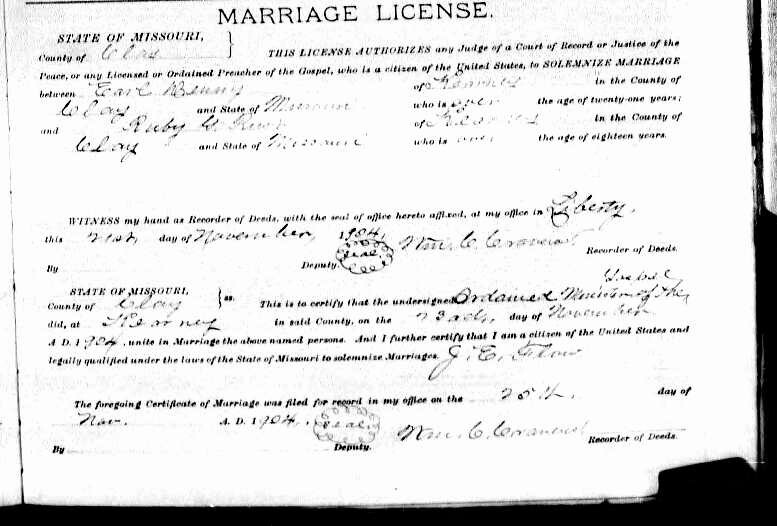 MARRIAGE LICENSE.
STATE OF MISSOURI,
County of Clay } THIS LICENSE AUTHORIZES any Judge of a Court of Record or Justice of the
Peace, or any Licensed or Ordained Preacher of the Gospel, who is a citizen of the United States, to SOLEMNIZE MARRIAGE
between Earl Denny of Kearney in the County of
Clay and State of Missouri who is over the age of twenty-one years;
and Ruby of Kearney in the County of
Clay and State of Missouri who is over the age of eighteen years.
WITNESS my hand as Recorder of Deeds, with the seal of office hereto affixed, at my office in Liberty,
this 21st day of November, 1904,
Seal Wm. C. Recorder of Deeds.
By Deputy.
STATE OF MISSOURI,
County of Clay } ss. This is to certify that the undersigned Ordained Minister of the Gospel
did, at Kearney in said County, on the 23rd, day of November
A D. 1904, unite in Marriage the above named persons. And I further certify that I am a citizen of the United States and
legally qualified under the laws of the State of Missouri to solemnize Marriages. J. E.
The foregoing Certificate of Marriage was filed for record in my office on the 25th. day of
Nov. A. D. 1904.
Seal Wm. C. Recorder of Deeds.
By Deputy.